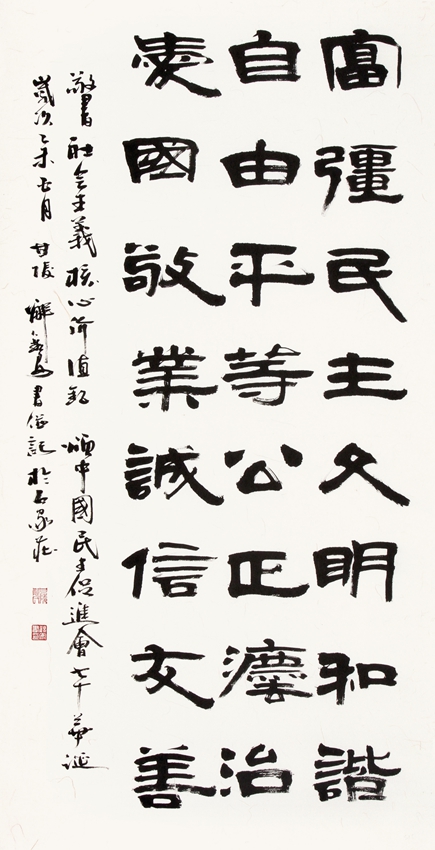 富彊民主文明和諧
自由平等公正灋治
愛國敬業誠信友善
敬書社会主義核心價值觀 頌中國民主促進會七十華诞
歲次乙未 月甘陵 書併記於石家莊